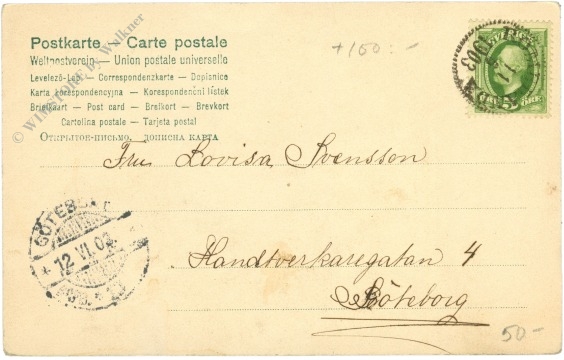 Postkarte — Carte postale
Weltpostverein — Union postale universelle
Levelező-Lap — Correspondenzkarte — Dopisnice
Karta korespondencyjna — Korespondenční lístek
Briefkaart — Post card — Brefkort — Brevkort
Cartolina postale — Tarjeta postal
Открытое-письмо, дописна карта
© WIMSTORE by Walkner
+150:-
SVERIGE
ÖRE
1903
Fru Lovisa Svensson
GÖTEBORG
12 VI.03
Handtverkaregatan 4
Göteborg
50-